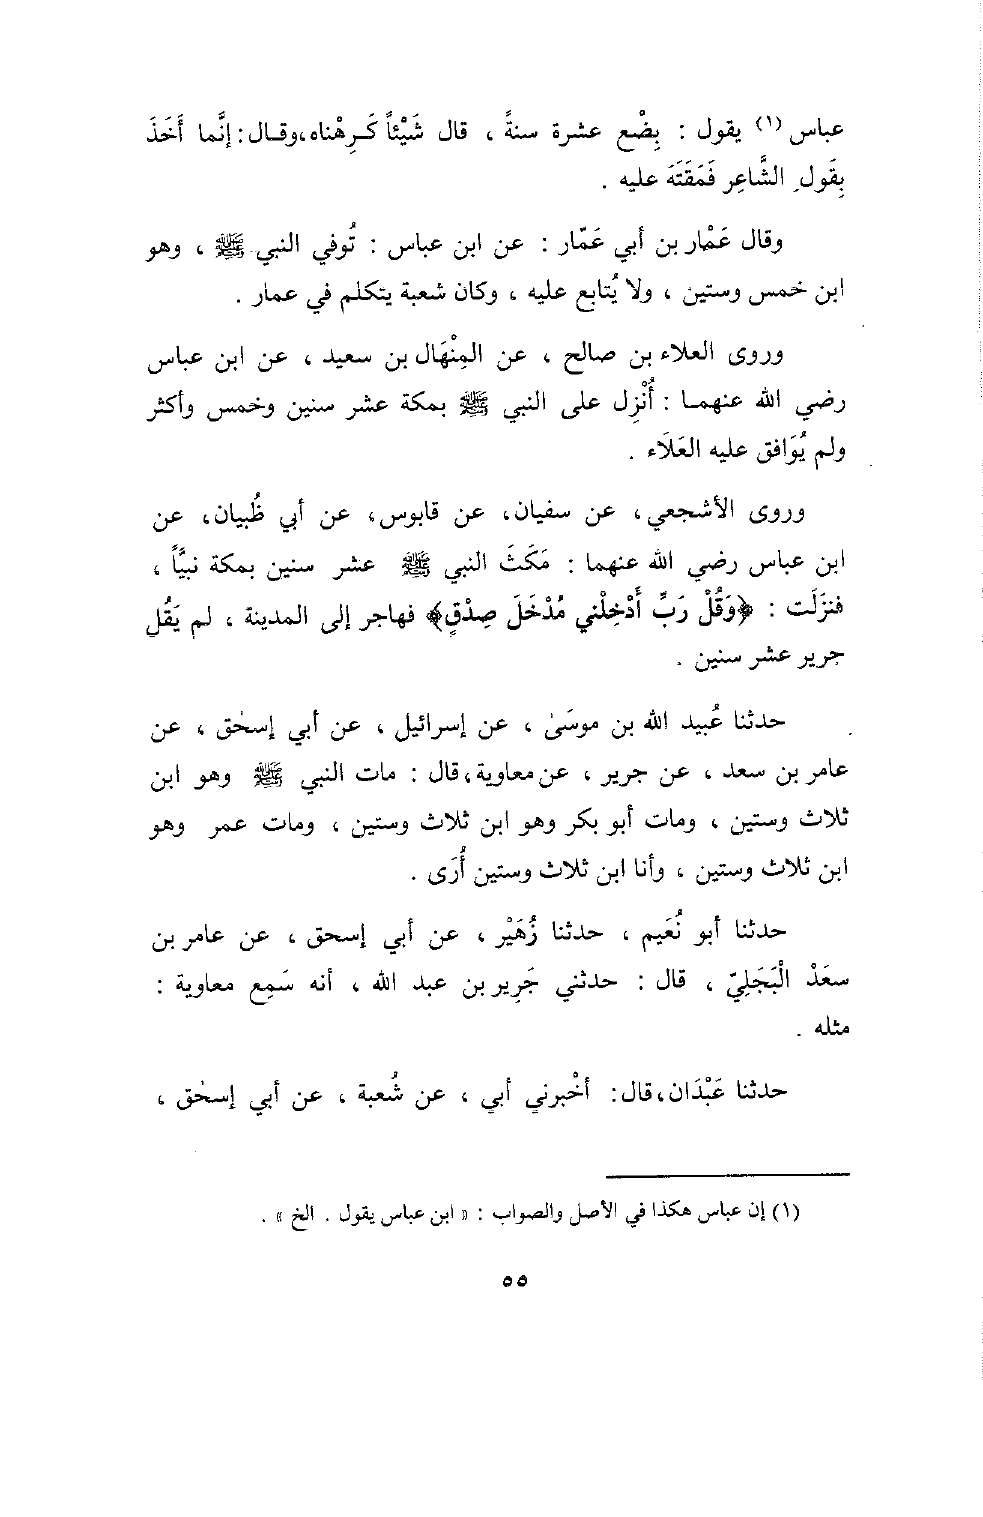 عباس (١) يقول : بِضْع عشرة سنةً ، قال شَيْئاً كَرِهْناه،وقال:إنَّما أَخَذَ
بِقَولِ الشَّاعِر فَمَقَتَهَ عليه .
وقال عَمْار بن أبي عَمّار : عن ابن عباس : تُوفي النبي ﷺ ، وهو
ابن خمس وستين ، ولا يُتابع عليه ، وكان شعبة يتكلم في عمار .
وروى العلاء بن صالح ، عن المِنْهَال بن سعيد ، عن ابن عباس
رضي الله عنهما : أُنْزِل على النبي ﷺ بمكة عشر سنين وخمس وأكثر
ولم يُوَافق عليه العَلَاء .
وروى الأشجعي، عن سفيان، عن قابوس، عن أبي ظُبيان، عن
ابن عباس رضي الله عنهما : مَكَثَ النبي ﷺ عشر سنين بمكة نبيَّاً ،
فنزَلَت : ﴿وَقُلْ رَبِّ أَدْخِلْني مُدْخَلَ صِدْقٍ﴾ فهاجر إلى المدينة ، لم يَقُل
جرير عشر سنين .
حدثنا عُبيد الله بن موسَىٰ ، عن إسرائيل ، عن أبي إسحٰق ، عن
عامر بن سعد ، عن جرير ، عن معاوية،قال : مات النبي ﷺ وهو ابن
ثلاث وستين ، ومات أبو بكر وهو ابن ثلاث وستين ، ومات عمر وهو
ابن ثلاث وستين ، وأنا ابن ثلاث وستين أُرَى .
حدثنا أبو نُعَيم ، حدثنا زُهَيْر ، عن أبي إسحق ، عن عامر بن
سعَدْ الْبَجَلِيّ ، قال : حدثني جَرِير بن عبد الله ، أنه سَمِع معاوية :
مثله .
حدثنا عَبْدَان،قال: أخْبرني أبي ، عن شُعبة ، عن أبي إسحٰق ،
(١) إن عباس هكذا في الأصل والصواب : « ابن عباس يقول . الخ » .
٥٥